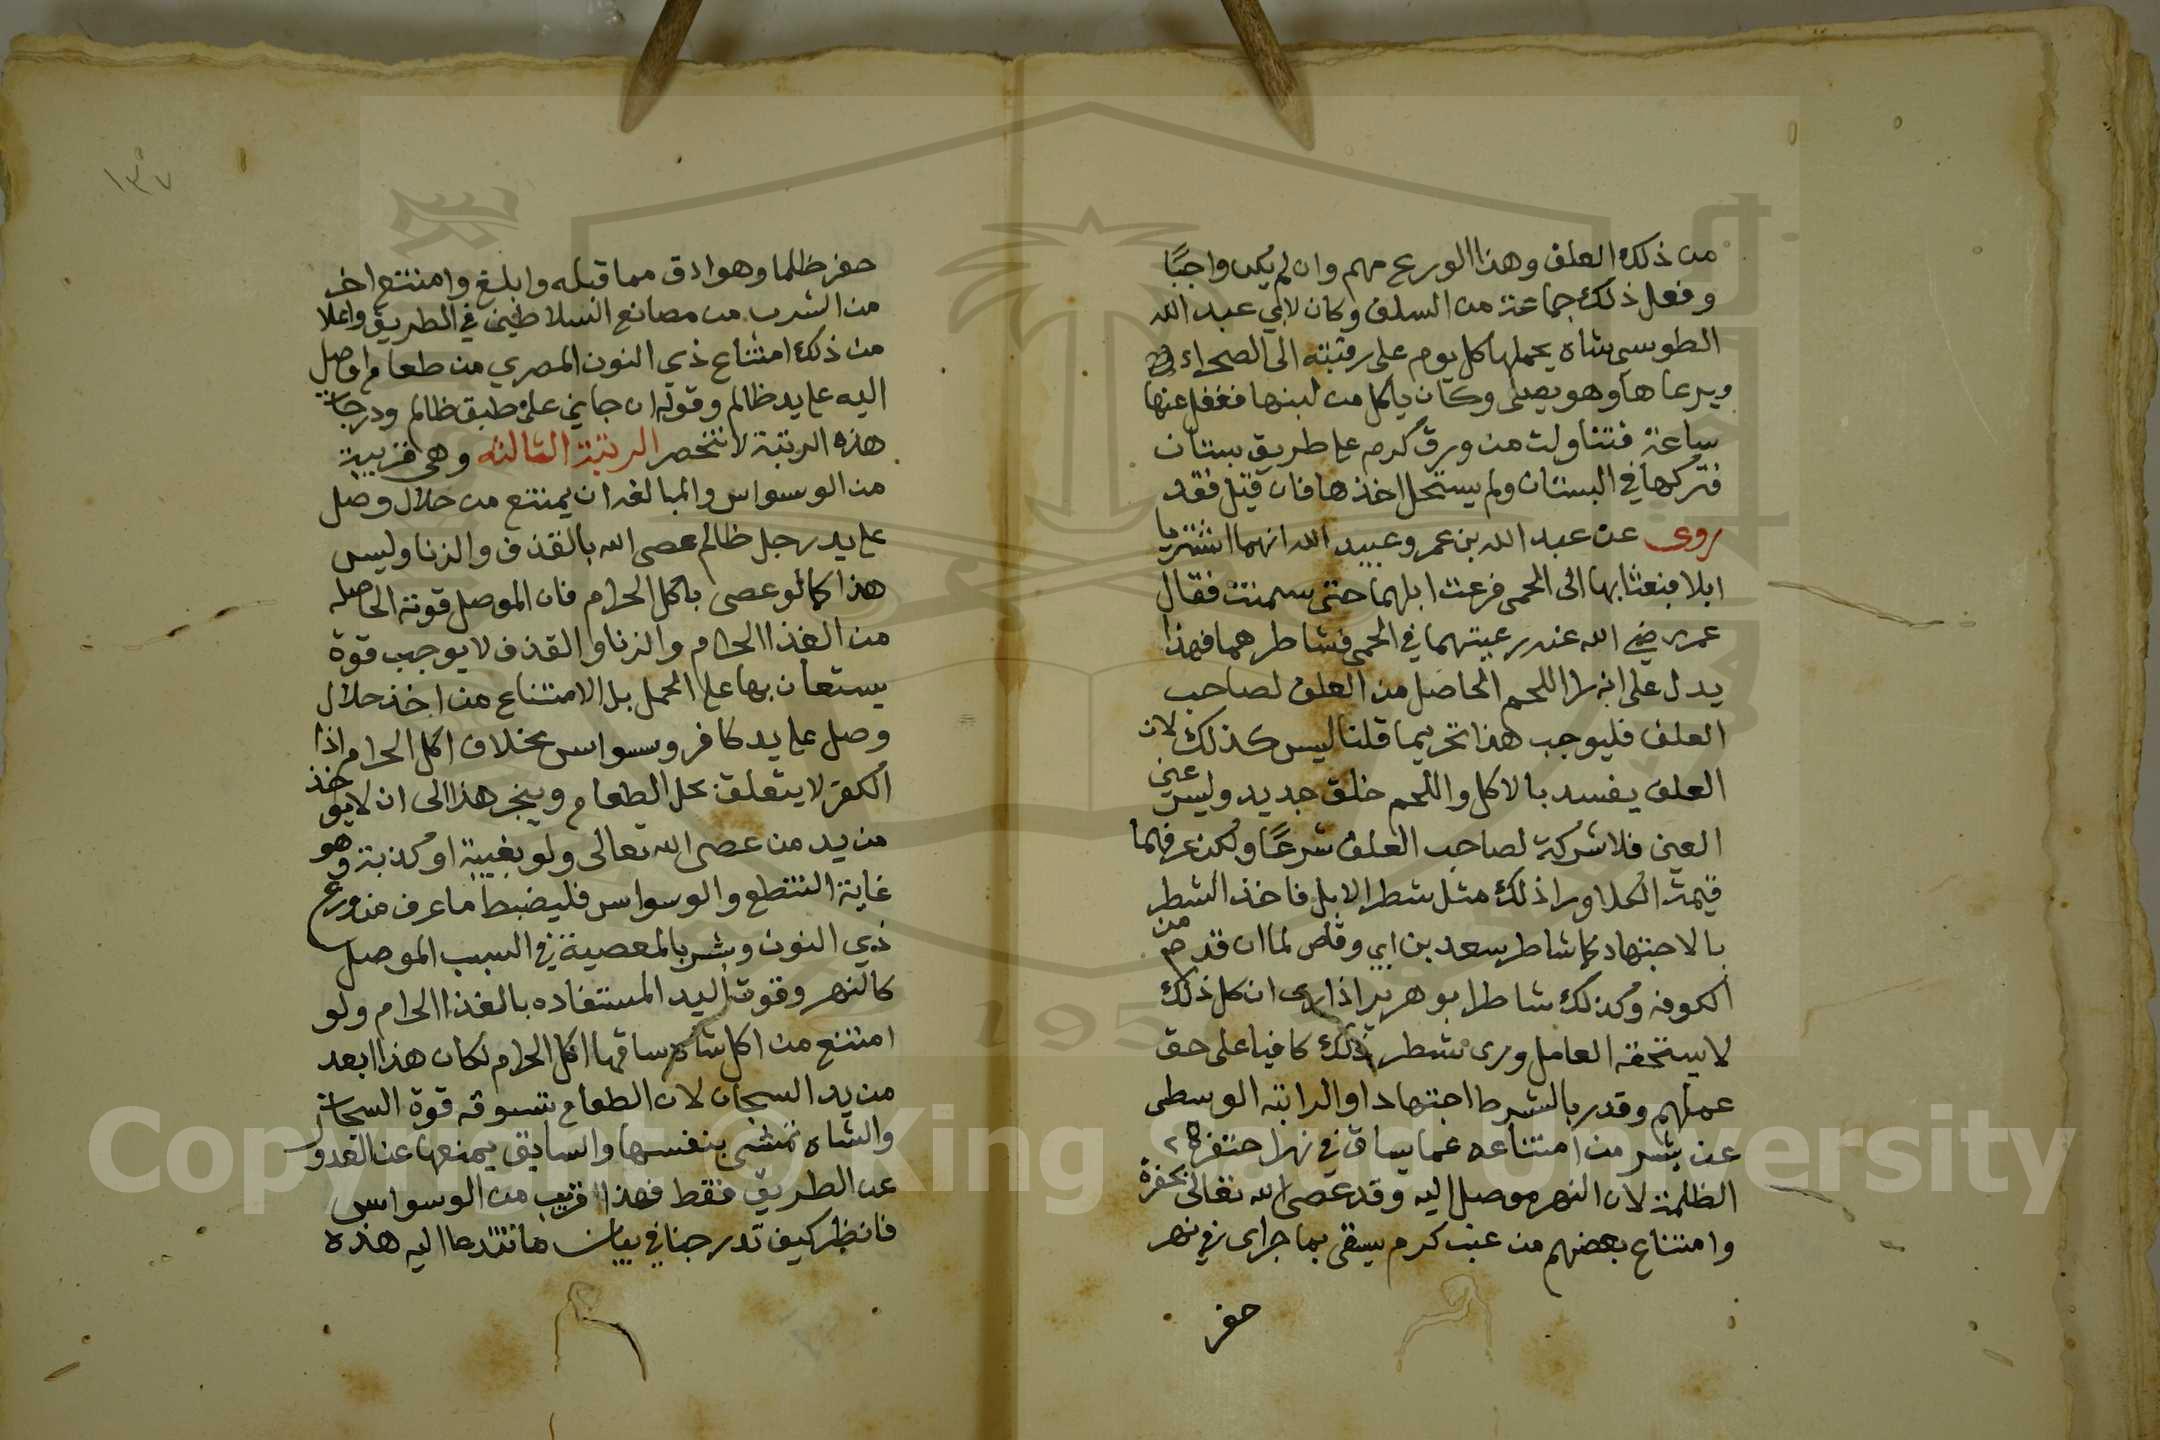 من ذلك العلف وهذا الورع مهم وان لم يكن واجبًا
وفعل ذلك جماعة من السلف وكان لابي عبد الله
الطوسي شاه يحملها كل يوم على رقبته الى الصحراء
ويرعاها وهو يصلى وكان ياكل من لبنها فغفل عنها
ساعة فتناولت من ورق كرم على طريق بستان
فتركها في البستان ولم يستحل اخذها فان قيل فقد
روى عن عبد الله بن عمر وعبيد الله انهما اشتريا
ابلا فبعثا بها الى الحمى فرعت ابلهما حتى سمنت فقال
عمر رضي الله عنه رعيتهما في الحمى فشاطرهما فهذا
يدل على انه را اللحم الحاصل من العلف لصاحب
العلف فليوجب هذا تحريما قلنا ليس كذلك لان
العلف يفسد بالاكل واللحم خلق جديد وليس عين
العين فلا شركة لصاحب العلف شرعًا ولكن عرفهما
قيمة الكلا ورا ذلك مثل شطر الابل فاخذ الشطر
بالاجتهاد كما شاطر سعد بن ابي وقاص لما ان قدم من
الكوفه وكذلك شاطر ابو هرير اذا راى ان كل ذلك
لا يستحقه العامل وراى شطر ذلك كافيا على حق
عملهم وقدر بالشرط اجتهادا والراتبه الوسطى
عن بشر من امتناعه عما يساق في نهر احتفره
الظلمة لان النهر موصل اليه وقد عصى الله تعالى بحفره
وامتناع بعضهم من عنب كرم يسقى بما جرى في نهر
حفر
١٣٧
حفر ظلما وهو ادق مما قبله وابلغ وامتنع اخر
من الشرب من مصانع السلاطين في الطريق واعلا
من ذلك امتناع ذي النون المصري من طعام اوصل
اليه على يد ظالم وقوله ان جاني على طبق ظالم ودرجات
هذه الرتبة لا تنحصر الرتبة الثالثه وهي قريبة
من الوسواس والمبالغه ان يمتنع من حلال وصل
على يد رجل ظالم عصى الله بالقذف والزنا وليس
هذا كما لو عصى باكل الحرام فان الموصل قوته الحاصله
من الغذا الحرام والزنا والقذف لا يوجب قوة
يستعان بها على الحمل بل الامتناع من اخذ حلال
وصل على يد كافر وسواس بخلاف اكل الحرام اذا
الكفر لا يتعلق بحل الطعام وينجر هذا الى ان لا يوخذ
من يد من عصى الله تعالى ولو بغيبة او كذبة وهو
غاية التنطع والوسواس فليضبط ما عرف من ورع
ذي النون وبشر بالمعصية في السبب الموصل
كالنهر وقوت اليد المستفاده بالغذا الحرام ولو
امتنع من اكل شاه ساقها اكل الحرام لكان هذا ابعد
من يد السجان لان الطعام تسوقه قوة السجان
والشاه تمشى بنفسها والسايق يمنعها عن العدول
عن الطريق فقط فهذا قريب من الوسواس
فانظر كيف تدرجنا في بيان ما تتدعا اليه هذه
Copy Right © King Saud University
195